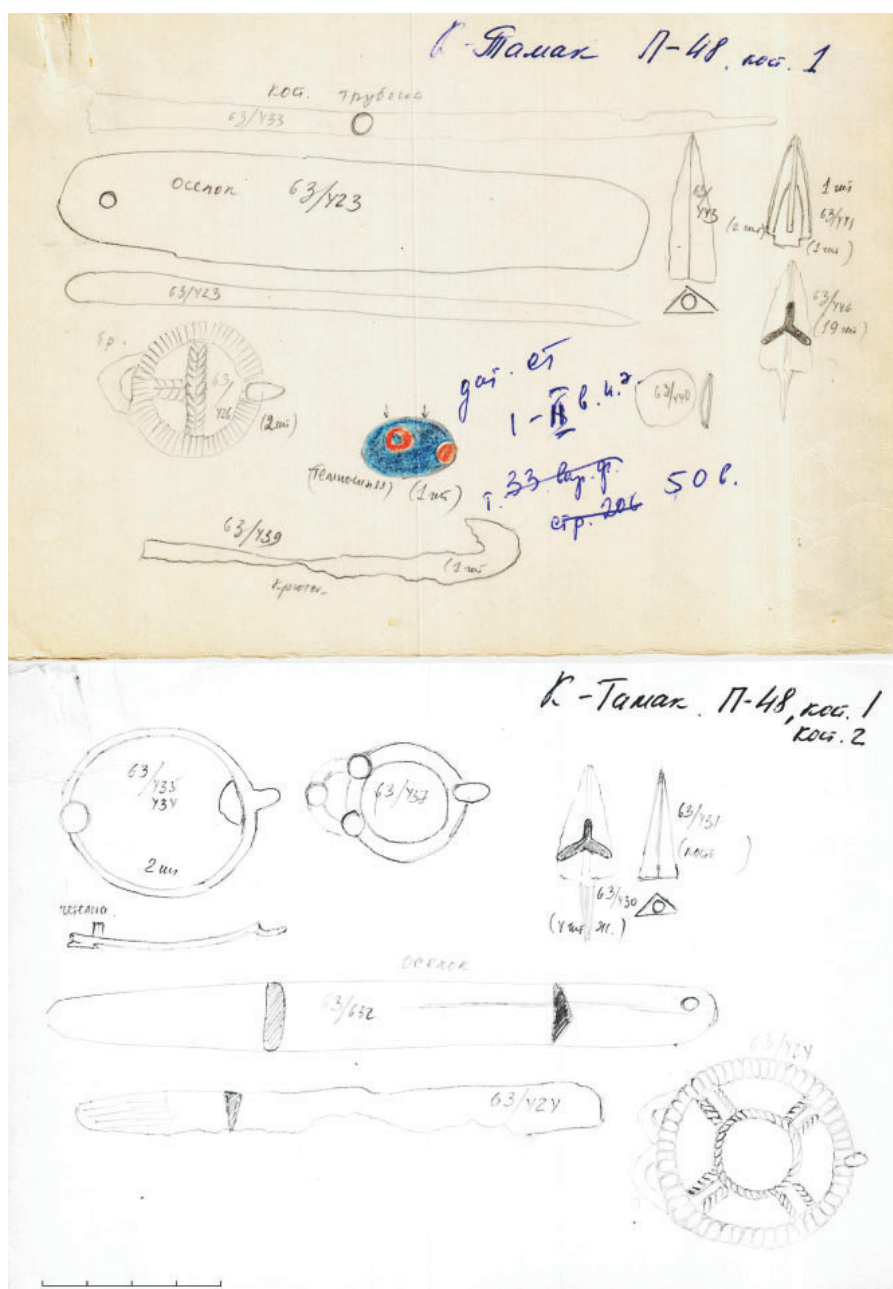 К-Тамак П-48, кост. 1
кост. трубочка
63/433
оселок 63/423
63/443
(2 шт)
1 шт
63/441
(1 шт)
63/423
63/446
(19 шт)
бр.
63/426
(2 шт)
63/440
дат. ст
1-II в. н.э.
(темносиняя) (1 шт)
т. 33. вкр. ф. 50 в.
стр. 206
63/439
(1 шт
крючок.
К-Тамак. П-48, кост. 1
кост. 2
63/435
434
2 шт
63/437
63/431
(кость )
63/430
(4 шт. ж.)
оселок
63/632
63/424
63/424